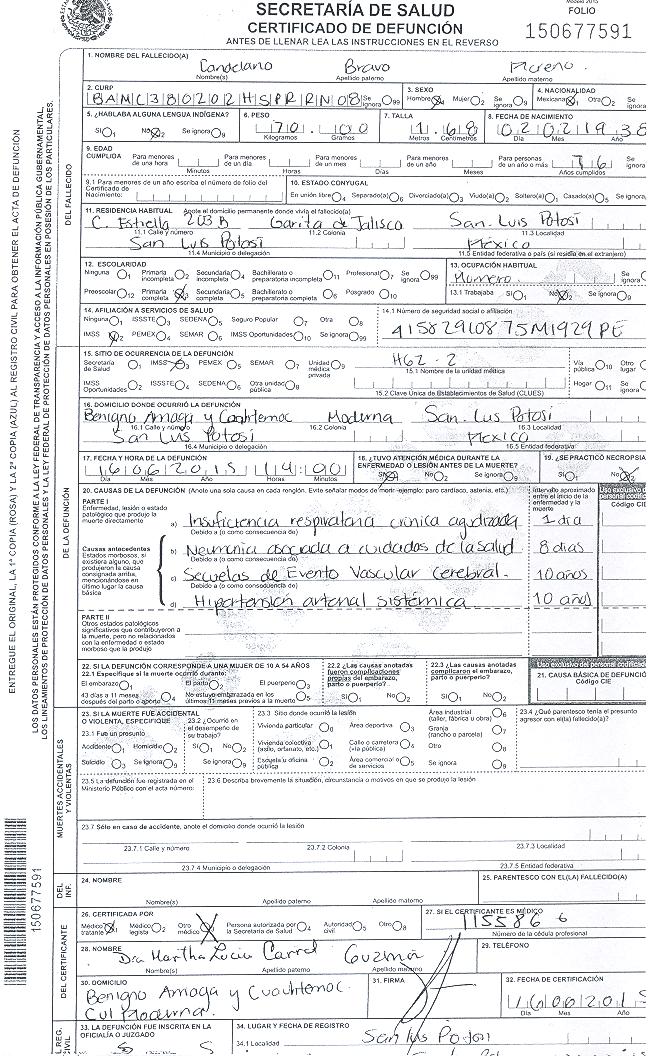 SECRETARÍA DE SALUD
CERTIFICADO DE DEFUNCIÓN
ANTES DE LLENAR LEA LAS INSTRUCCIONES EN EL REVERSO
Modelo 2015
FOLIO
150677591
1. NOMBRE DEL FALLECIDO(A)
Bravo Moreno
Nombre(s) Apellido paterno Apellido materno
2. CURP BAMC380202HSPRRN08 Se ignora 99
3. SEXO Hombre 1 Mujer 2 Se ignora 9
4. NACIONALIDAD Mexicana 1 Otra 2 Se ignora
5. ¿HABLABA ALGUNA LENGUA INDÍGENA? Sí 1 No 2 Se ignora 9
6. PESO 70.100 Kilogramos Gramos
7. TALLA 1.68 Metros Centímetros
8. FECHA DE NACIMIENTO 02021938 Día Mes Año
9. EDAD CUMPLIDA Para menores de una hora Minutos Para menores de un día Horas Para menores de un mes Días Para menores de un año Meses Para personas de un año o más 76 Años cumplidos Se ignora
9.1 Para menores de un año escriba el número de folio del Certificado de Nacimiento:
10. ESTADO CONYUGAL
En unión libre 4 Separado(a) 6 Divorciado(a) 3 Viudo(a) 2 Soltero(a) 1 Casado(a) 5 Se ignora
11. RESIDENCIA HABITUAL Anote el domicilio permanente donde vivía el fallecido(a)
C. Estrella 203 B Garita de Jalisco San Luis Potosí
11.1 Calle y número 11.2 Colonia 11.3 Localidad
San Luis Potosí México
11.4 Municipio o delegación 11.5 Entidad federativa o país (si residía en el extranjero)
12. ESCOLARIDAD
Ninguna 1 Primaria incompleta 2 Secundaria incompleta 4 Bachillerato o preparatoria incompleta 11 Profesional 7 Se ignora 99
Preescolar 12 Primaria completa 3 Secundaria completa 5 Bachillerato o preparatoria completa 6 Posgrado 10
13. OCUPACIÓN HABITUAL
13.1 Trabajaba Sí 1 No 2 Se ignora 9
14. AFILIACIÓN A SERVICIOS DE SALUD
Ninguna 1 ISSSTE 3 SEDENA 5 Seguro Popular 7 Otra 8
IMSS 2 PEMEX 4 SEMAR 6 IMSS Oportunidades 10 Se ignora 99
14.1 Número de seguridad social o afiliación
41582910875M1929PE
15. SITIO DE OCURRENCIA DE LA DEFUNCIÓN
Secretaría de Salud 1 IMSS 3 PEMEX 5 SEMAR 7 Unidad médica privada 9
HGZ-2
15.1 Nombre de la unidad médica
Vía pública 10 Otro lugar
IMSS Oportunidades 2 ISSSTE 4 SEDENA 6 Otra unidad pública 8
15.2 Clave Única de Establecimientos de Salud (CLUES)
Hogar 11 Se ignora
16. DOMICILIO DONDE OCURRIÓ LA DEFUNCIÓN
Moderna San Luis Potosí
16.1 Calle y número 16.2 Colonia 16.3 Localidad
San Luis Potosí México
16.4 Municipio o delegación 16.5 Entidad federativa
17. FECHA Y HORA DE LA DEFUNCIÓN
16062015 14:00
Día Mes Año Horas Minutos
18. ¿TUVO ATENCIÓN MÉDICA DURANTE LA ENFERMEDAD O LESIÓN ANTES DE LA MUERTE?
Sí 1 No 2 Se ignora 9
19. ¿SE PRACTICÓ NECROPSIA
Sí 1 No 2
20. CAUSAS DE LA DEFUNCIÓN (Anote una sola causa en cada renglón. Evite señalar modos de morir, ejemplo: paro cardiaco, astenia, etc.)
Intervalo aproximado entre el inicio de la enfermedad y la muerte
Uso exclusivo
personal codifi
Código CIE
PARTE I
Enfermedad, lesión o estado patológico que produjo la muerte directamente
a) Insuficiencia respiratoria crónica agudizada 1 día
Debido a (o como consecuencia de)
Causas antecedentes
Estados morbosos, si existiera alguno, que produjeron la causa consignada arriba, mencionándose en último lugar la causa básica
b) Neumonía asociada a cuidados de la salud 8 días
Debido a (o como consecuencia de)
c) Secuelas de Evento Vascular cerebral. 10 años
Debido a (o como consecuencia de)
d) Hipertensión arterial sistémica 10 años
PARTE II
Otros estados patológicos significativos que contribuyeron a la muerte, pero no relacionados con la enfermedad o estado morboso que la produjo
22. SI LA DEFUNCIÓN CORRESPONDE A UNA MUJER DE 10 A 54 AÑOS
22.1 Especifique si la muerte ocurrió durante:
El embarazo 1 El parto 2 El puerperio 3
43 días a 11 meses después del parto o aborto 4 No estuvo embarazada en los últimos 11 meses previos a la muerte 5
22.2 ¿Las causas anotadas fueron complicaciones propias del embarazo, parto o puerperio?
Sí 1 No 2
22.3 ¿Las causas anotadas complicaron el embarazo, parto o puerperio?
Sí 1 No 2
Uso exclusivo del personal codificado
21. CAUSA BÁSICA DE DEFUNCIÓ
Código CIE
23. SI LA MUERTE FUE ACCIDENTAL O VIOLENTA, ESPECIFIQUE
23.1 Fue un presunto
Accidente 1 Homicidio 2
Suicidio 3 Se ignora 9
23.2 ¿Ocurrió en el desempeño de su trabajo?
Sí 1 No 2
Se ignora 9
23.3 Sitio donde ocurrió la lesión
Vivienda particular 0 Área deportiva 3 Área industrial (taller, fábrica u obra) 6
Vivienda colectiva (asilo, orfanato, etc.) 1 Calle o carretera (vía pública) 4 Granja (rancho o parcela) 7
Escuela u oficina pública 2 Área comercial o de servicios 5 Otro 8
Se ignora 9
23.4 ¿Qué parentesco tenía el presunto agresor con el(la) fallecido(a)?
23.5 La defunción fue registrada en el Ministerio Público con el acta número:
23.6 Describa brevemente la situación, circunstancia o motivos en que se produjo la lesión
23.7 Sólo en caso de accidente, anote el domicilio donde ocurrió la lesión
23.7.1 Calle y número 23.7.2 Colonia 23.7.3 Localidad
23.7.4 Municipio o delegación 23.7.5 Entidad federativa
24. NOMBRE
Nombre(s) Apellido paterno Apellido materno
25. PARENTESCO CON EL(LA) FALLECIDO(A)
26. CERTIFICADA POR
Médico tratante 1 Médico legista 2 Otro médico 3 Persona autorizada por la Secretaría de Salud 4 Autoridad civil 5 Otro 8
27. SI EL CERTIFICANTE ES MÉDICO
1155866
Número de la cédula profesional
28. NOMBRE
Dra Martha Lucía Guzmán
Nombre(s) Apellido paterno Apellido materno
29. TELÉFONO
30. DOMICILIO
Col Moderna.
31. FIRMA
32. FECHA DE CERTIFICACIÓN
Día Mes Año
33. LA DEFUNCIÓN FUE INSCRITA EN LA OFICIALÍA O JUZGADO
34. LUGAR Y FECHA DE REGISTRO
34.1 Localidad
ENTREGUE EL ORIGINAL, LA 1ª COPIA (ROSA) Y LA 2ª COPIA (AZUL) AL REGISTRO CIVIL PARA OBTENER EL ACTA DE DEFUNCIÓN
LOS DATOS PERSONALES ESTÁN PROTEGIDOS CONFORME A LA LEY FEDERAL DE TRANSPARENCIA Y ACCESO A LA INFORMACIÓN PÚBLICA GUBERNAMENTAL,
LOS LINEAMIENTOS DE PROTECCIÓN DE DATOS PERSONALES Y LA LEY FEDERAL DE PROTECCIÓN DE DATOS PERSONALES EN POSESIÓN DE LOS PARTICULARES.
150677591
DEL FALLECIDO
DE LA DEFUNCIÓN
MUERTES ACCIDENTALES Y VIOLENTAS
DEL INF.
DEL CERTIFICANTE
L REG. CIVIL